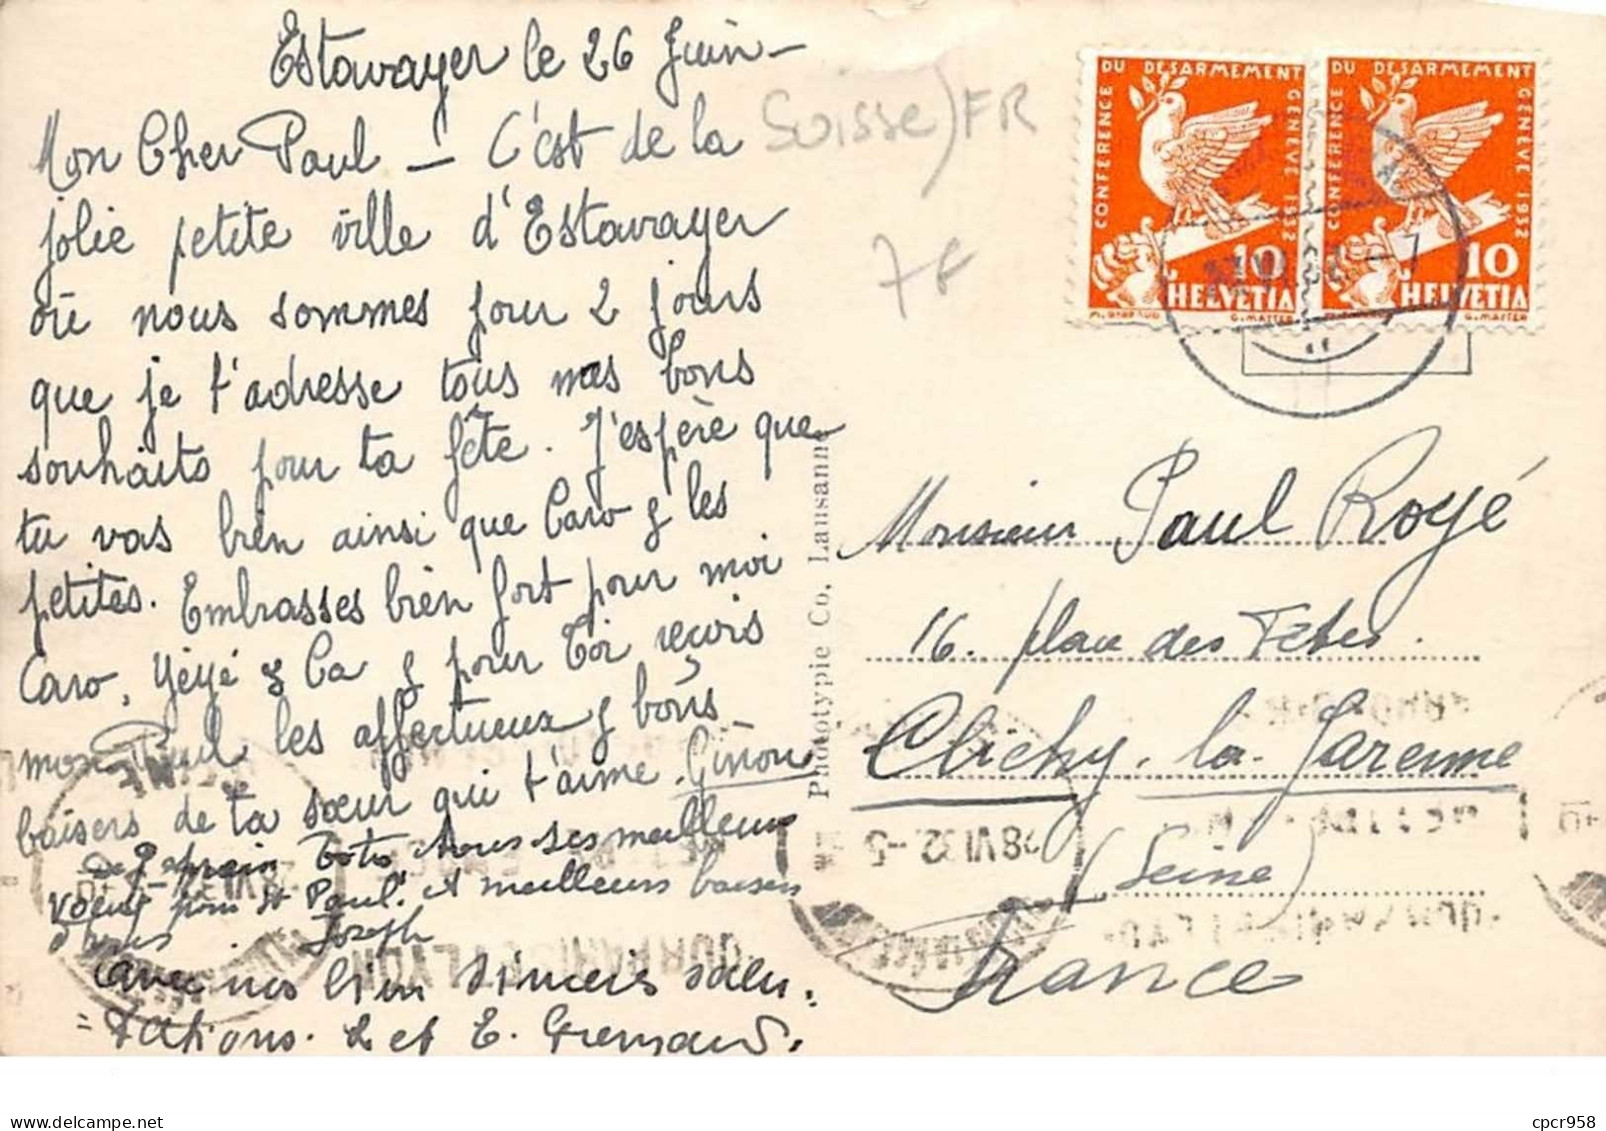 Estavayer le 26 Juin -
Mon Cher Paul - C'est de la
jolie petite ville d'Estavayer
où nous sommes pour 2 jours
que je t'adresse tous mes bons
souhaits pour ta fête. J'espère que
tu vas bien ainsi que Caro & les
petites. Embrasses bien fort pour moi
Caro, Yéyé & Ca & pour Toi reçois
mon Paul les affectueux & bons
baisers de ta sœur qui t'aime. Ginon
Toto tous ses meilleurs
vœux pour St Paul. & meilleurs baisers
Joseph
avec nos bien sincères salu=
=tations. L et E. Gremaud.
Suisse) FR
7F
CONFERENCE DU DESARMEMENT GENEVE 1932
10
HELVETIA
G. MATTER
CONFERENCE DU DESARMEMENT GENEVE 1932
10
HELVETIA
G. MATTER
Phototypie Co, Lausanne
Monsieur Paul Royé
16. place des Fêtes.
Clichy. la. Garenne
(Seine)
France
28 VI 32
delcampe.net
cpcr958